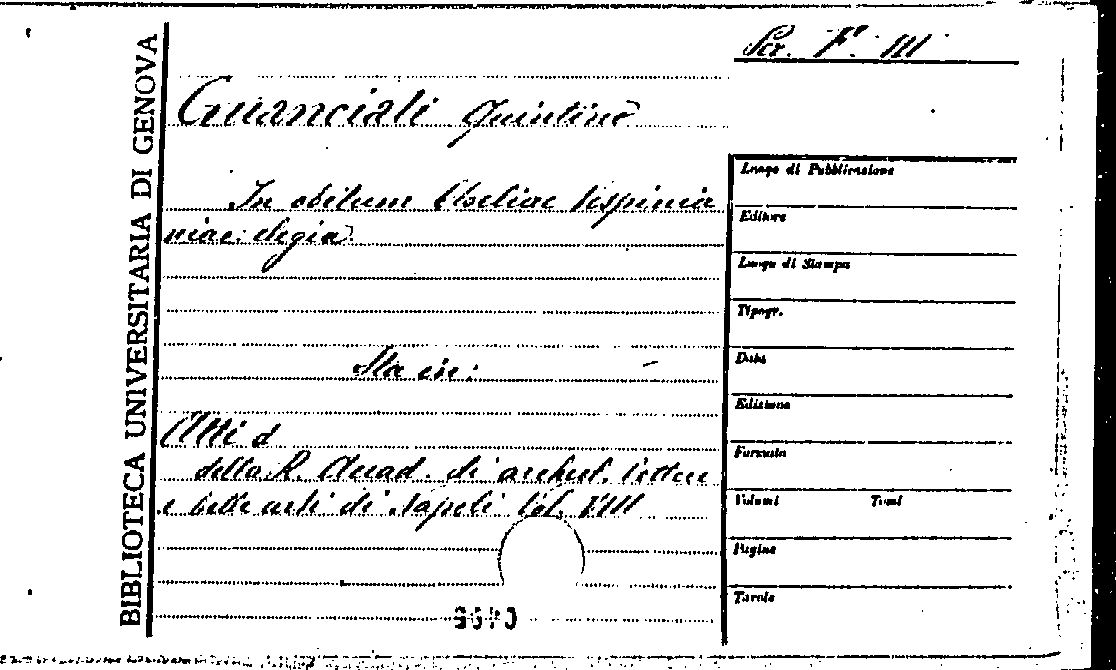 BIBLIOTECA UNIVERSITARIA DI GENOVA
Per. F. III
Guanciali Quintino
In obitum
niae: elegia.
Sta in:
Atti d
della R. Accad. di archeol. lettere
e belle arti di Napoli Vol. VIII
Luogo di Pubblicazione
Editore
Luogo di Stampa
Tipogr.
Data
Edizione
Formato
Volumi Tomi
Pagine
Tavole